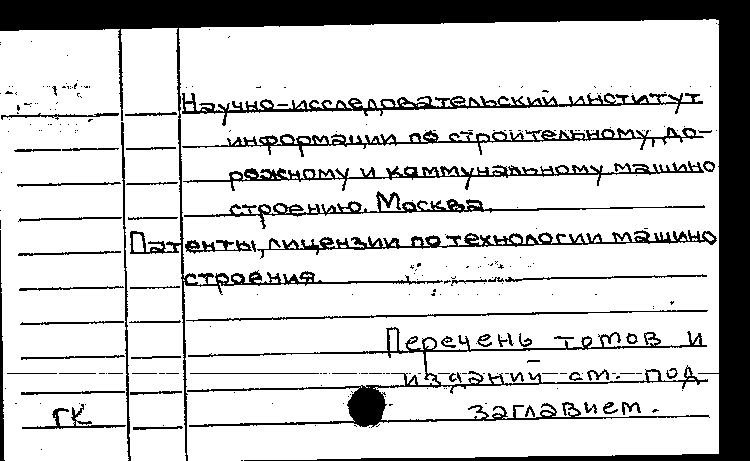 Научно-исследовательский институт
информации по строительному, до-
рожному и коммунальному машино
строению. Москва.
Патенты, лицензии по технологии машино
строения.
Перечень томов и
изданий см. под
заглавием.
ГК